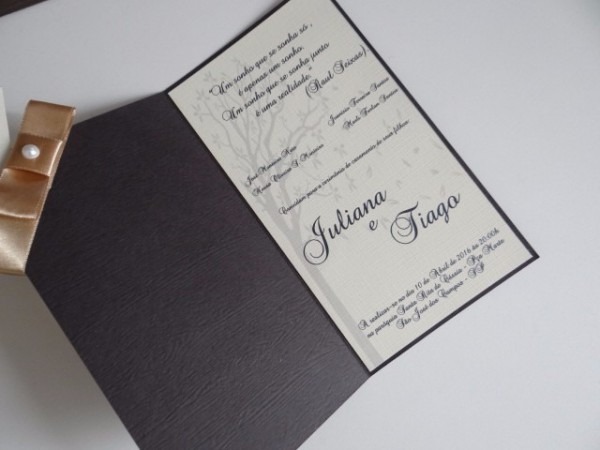 "Um sonho que se sonha só,
é apenas um sonho.
Um sonho que se sonha junto
é uma realidade."
(Raul Seixas)
José Maria
Convidam para a cerimônia de casamento de seus filhos:
Juliana
e
Tiago
A realizar-se no dia 10 de Abril de 2016 às 20:00h
na paróquia Santa Rita de Cássia -
São José dos Campos - SP